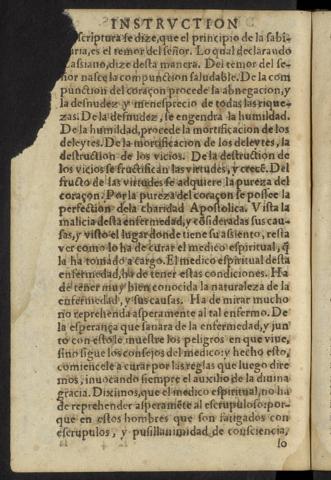 INSTRVCTION
scriptura se dize, que el principio de la sabi-
uria, es el temor del señor. Lo qual declarando
Casiano, dize desta manera. Del temor del se-
ñor nasce la compunction saludable. De la com
punction del coraçon procede la abnegacion, y
la desnudez y menosprecio de todas las rique-
zas. De la desnudez, se engendra la humildad.
De la humildad, procede la mortificacion de los
deleytes. De la mortificacion de los deleytes, la
destruction de los vicios. De la destruction de
los vicios se fructifican las virtudes, y crecē. Del
fructo de las virtudes se adquiere la pureza del
coraçon. Por la pureza del coraçon se possee la
perfection dela charidad Apostolica. Vista la
malicia desta enfermedad, y cōsideradas sus cau-
sas, y visto el lugar donde tiene su assiento, resta
ver como lo ha de curar el medico espiritual, q̃
la ha tomado a cargo. El medico espiritual desta
enfermedad, ha de tener estas condiciones. Ha
de tener muy bien conocida la naturaleza de la
enfermedad, y sus causas. Ha de mirar mucho
no reprehenda asperamente al tal enfermo. De
la esperança que sanara de la enfermedad, y jun
to con esto le muestre los peligros en que viue,
sino sigue los consejos del medico: y hecho esto,
comiencele a curar por las reglas que luego dire
mos, inuocando siempre el auxilio de la diuina
gracia. Diximos, que el medico espiritual, no ha
de reprehender asperamēte al escrupuloso: por-
que en estos hombres que son fatigados con
escrupulos, y pusillanimidad de consciencia,
so